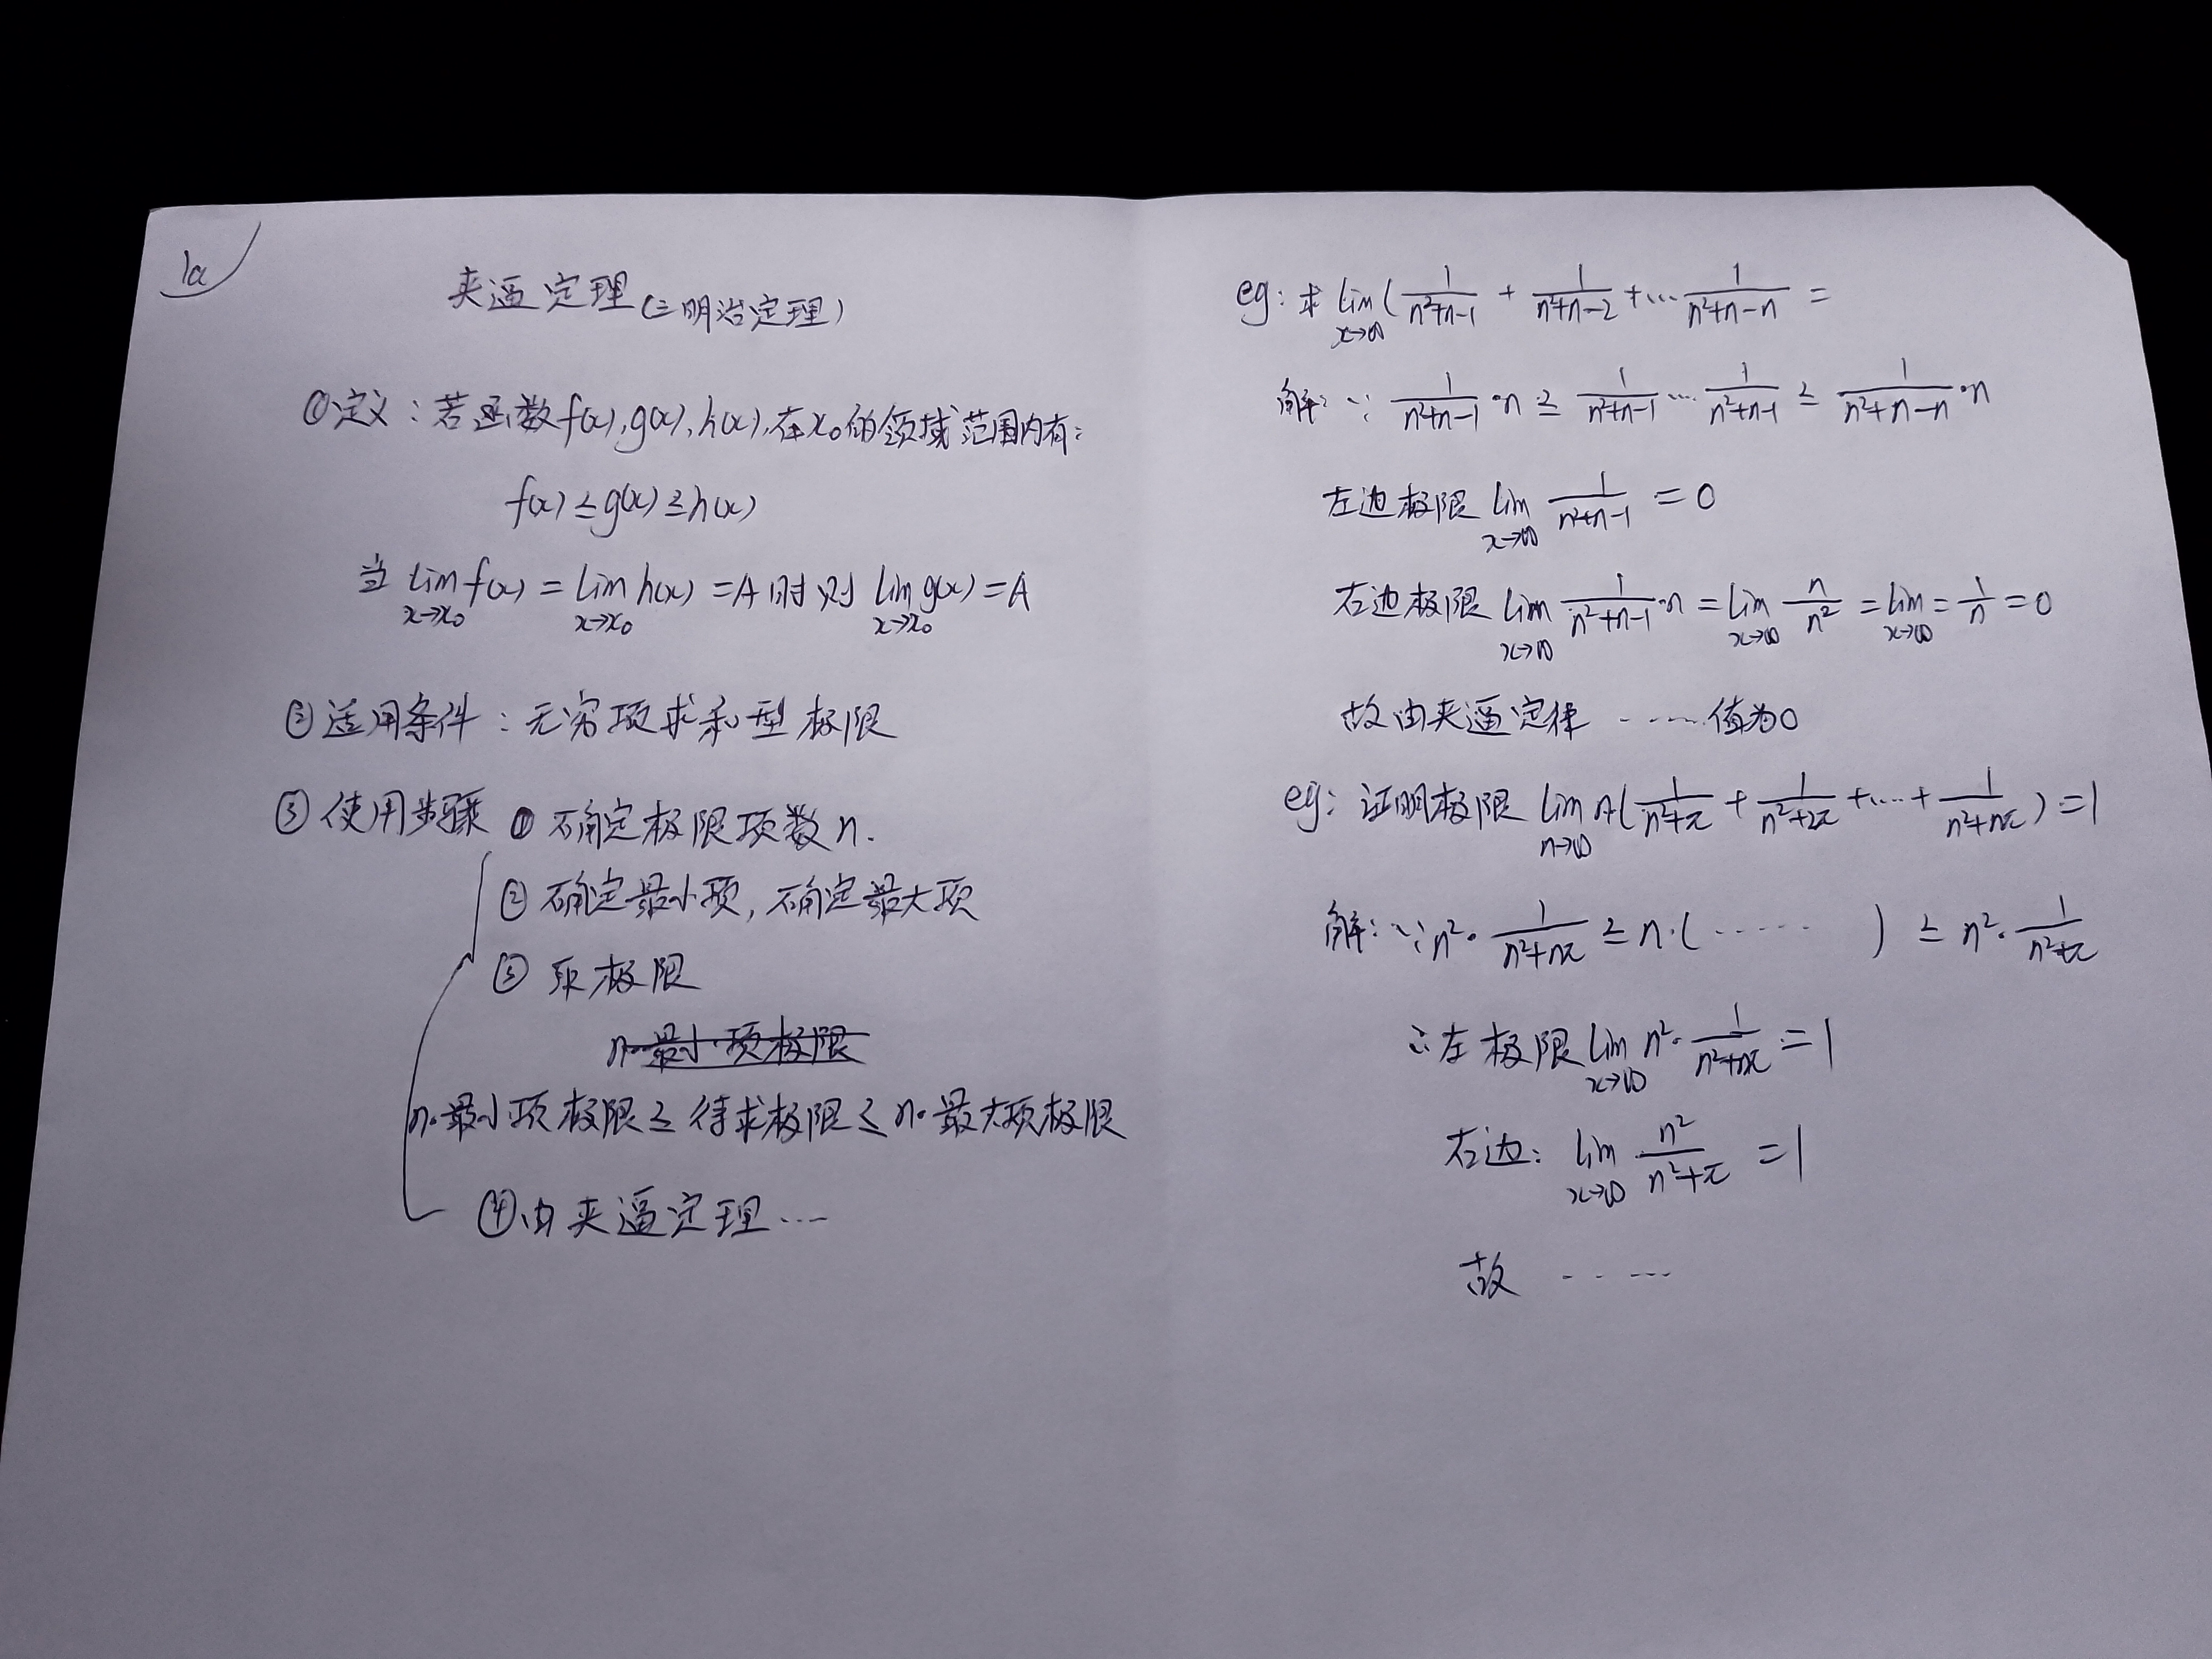 1a
夹逼定理(三明治定理)
①定义：若函数f(x),g(x),h(x),在x₀的领域范围内有:
f(x)≤g(x)≤h(x)
当 lim_{x→x₀} f(x) = lim_{x→x₀} h(x) = A 时 则 lim_{x→x₀} g(x) = A
②适用条件：无穷项求和型极限
③使用步骤 ①确定极限项数n.
②确定最小项,确定最大项
③求极限
n·最小项极限
n·最小项极限≤待求极限≤n·最大项极限
④由夹逼定理…
eg: 求 lim_{x→∞} ( 1/(n²+n-1) + 1/(n²+n-2) + … 1/(n²+n-n) =
解: ∵ 1/(n²+n-1)·n ≤ 1/(n²+n-1) … 1/(n²+n-1) ≤ 1/(n²+n-n)·n
左边极限 lim_{x→∞} 1/(n²+n-1) = 0
右边极限 lim_{x→∞} 1/(n²+n-1)·n = lim_{x→∞} n/n² = lim_{x→∞} = 1/n = 0
故由夹逼定律 ……值为0
eg: 证明极限 lim_{n→∞} n( 1/(n²+π) + 1/(n²+2π) + … + 1/(n²+nπ) ) = 1
解: ∵ n²· 1/(n²+nπ) ≤ n·( …… ) ≤ n²· 1/(n²+π)
∴左极限 lim_{x→∞} n²· 1/(n²+nπ) = 1
右边: lim_{x→∞} n²/(n²+π) = 1
故 ……